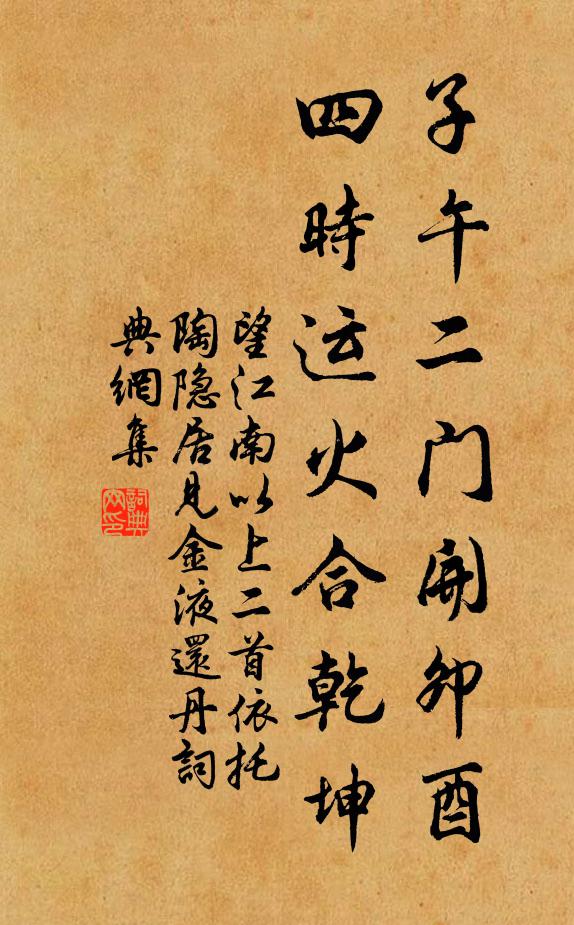 子午二門開卯酉
四時运火合乾坤
望江南以上二首依托
陶隐居見金液還丹詞
典網集
詞典
网印